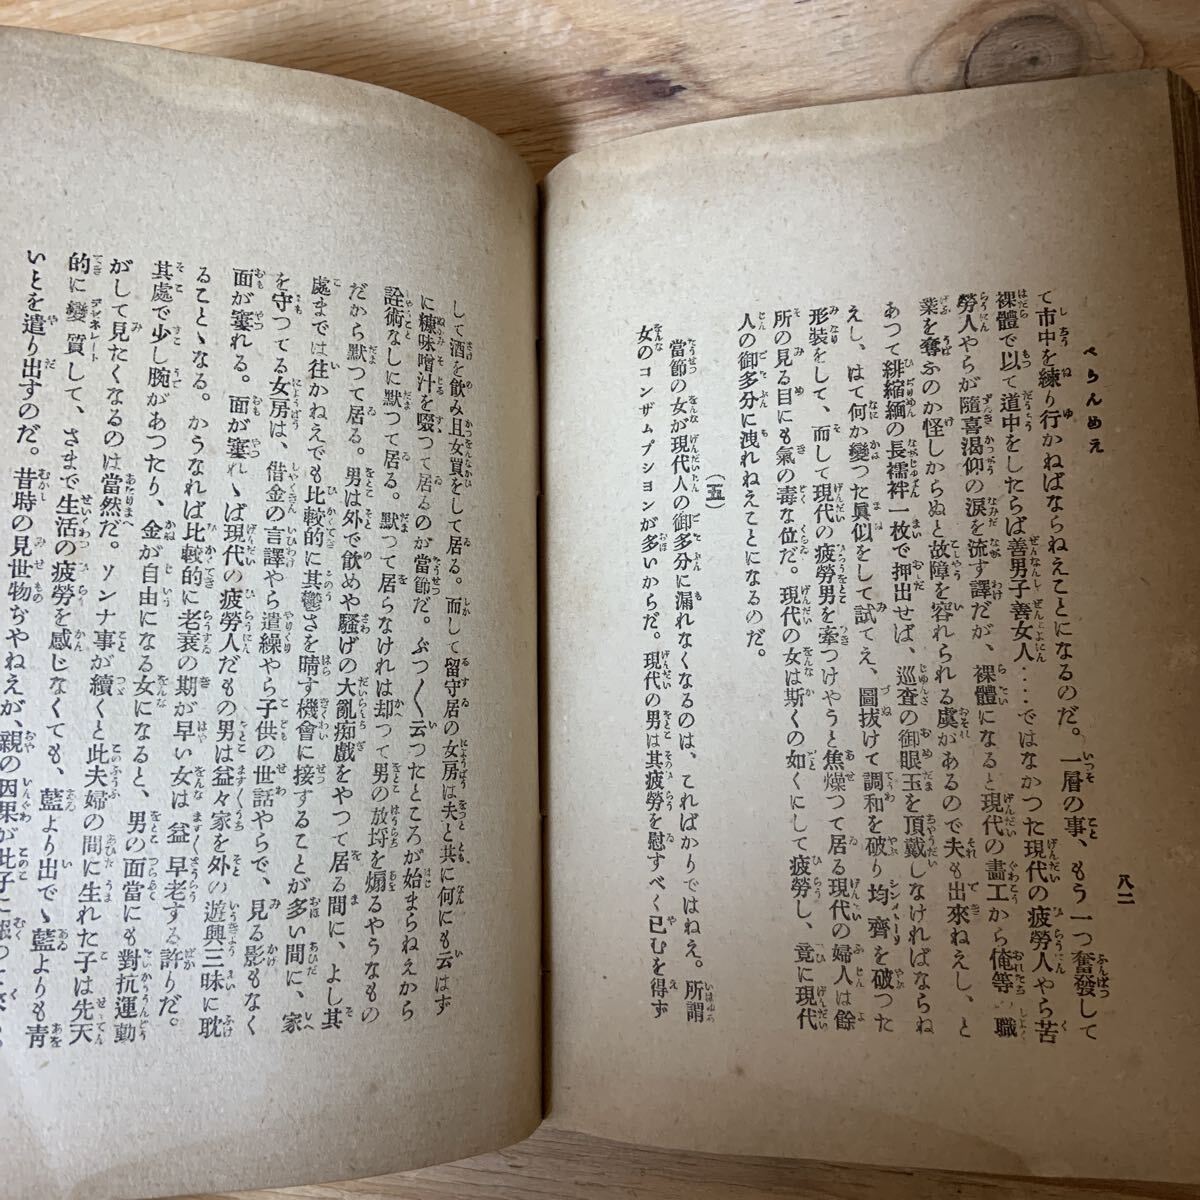 べらんめえ
八二
て市中を練り行かねばならねえことになるのだ。一層の事、もう一つ奮發して
裸體で以て道中をしたらば善男子善女人‥‥ではなかつた現代の疲勞人やら苦
勞人やらが隨喜渇仰の涙を流す譯だが、裸體になると現代の畵工から俺等の職
業を奪ふのか怪しからぬと故障を容れられる虞があるので夫も出來ねえし、と
あつて緋縮緬の長襦袢一枚で押出せば、巡査の御眼玉を頂戴しなければならね
えし、はて何か變つた眞似をして試てえ、圖拔けて調和を破り均齊を破つた
形裝をして、而して現代の疲勞男を牽つけやうと焦燥つて居る現代の婦人は餘
所の見る目にも氣の毒な位だ。現代の女は斯くの如くにして疲勞し、竟に現代
人の御多分に洩れねえことになるのだ。
(五)
當節の女が現代人の御多分に漏れなくなるのは、こればかりではねえ。所謂
女のコンザムプションが多いからだ。現代の男は其疲勞を慰すべく已むを得ず
して酒を飲み且女買をして居る。而して留守居の女房は夫と共に何にも云はず
に糠味噌汁を啜つて居るのが當節だ。ぶつ〱云つたところが始まらねえから
詮術なしに默つて居る。默つて居らなければ却つて男の放埓を煽るやうなもの
だから默つて居る。男は外で飲めや騷げの大亂痴戲をやつて居る間に、よし其
處までは往かねえでも比較的に其鬱さを晴す機會に接することが多い間に、家
を守つてる女房は、借金の言譯やら遣繰やら子供の世話やらで、見る影もなく
面が窶れる。面が窶れゝば現代の疲勞人だもの男は益々家を外の遊興三昧に耽
ることゝなる。かうなれば比較的に老衰の期が早い女は益早老する許りだ。
其處で少し腕があつたり、金が自由になる女になると、男の面當にも對抗運動
がして見たくなるのは當然だ。ソンナ事が續くと此夫婦の間に生れた子は先天
的に變質して、さまで生活の疲勞を感じなくても、藍より出でゝ藍よりも靑
いとを遣り出すのだ。昔時の見世物ぢやねえが、親の因果が此子に報つて